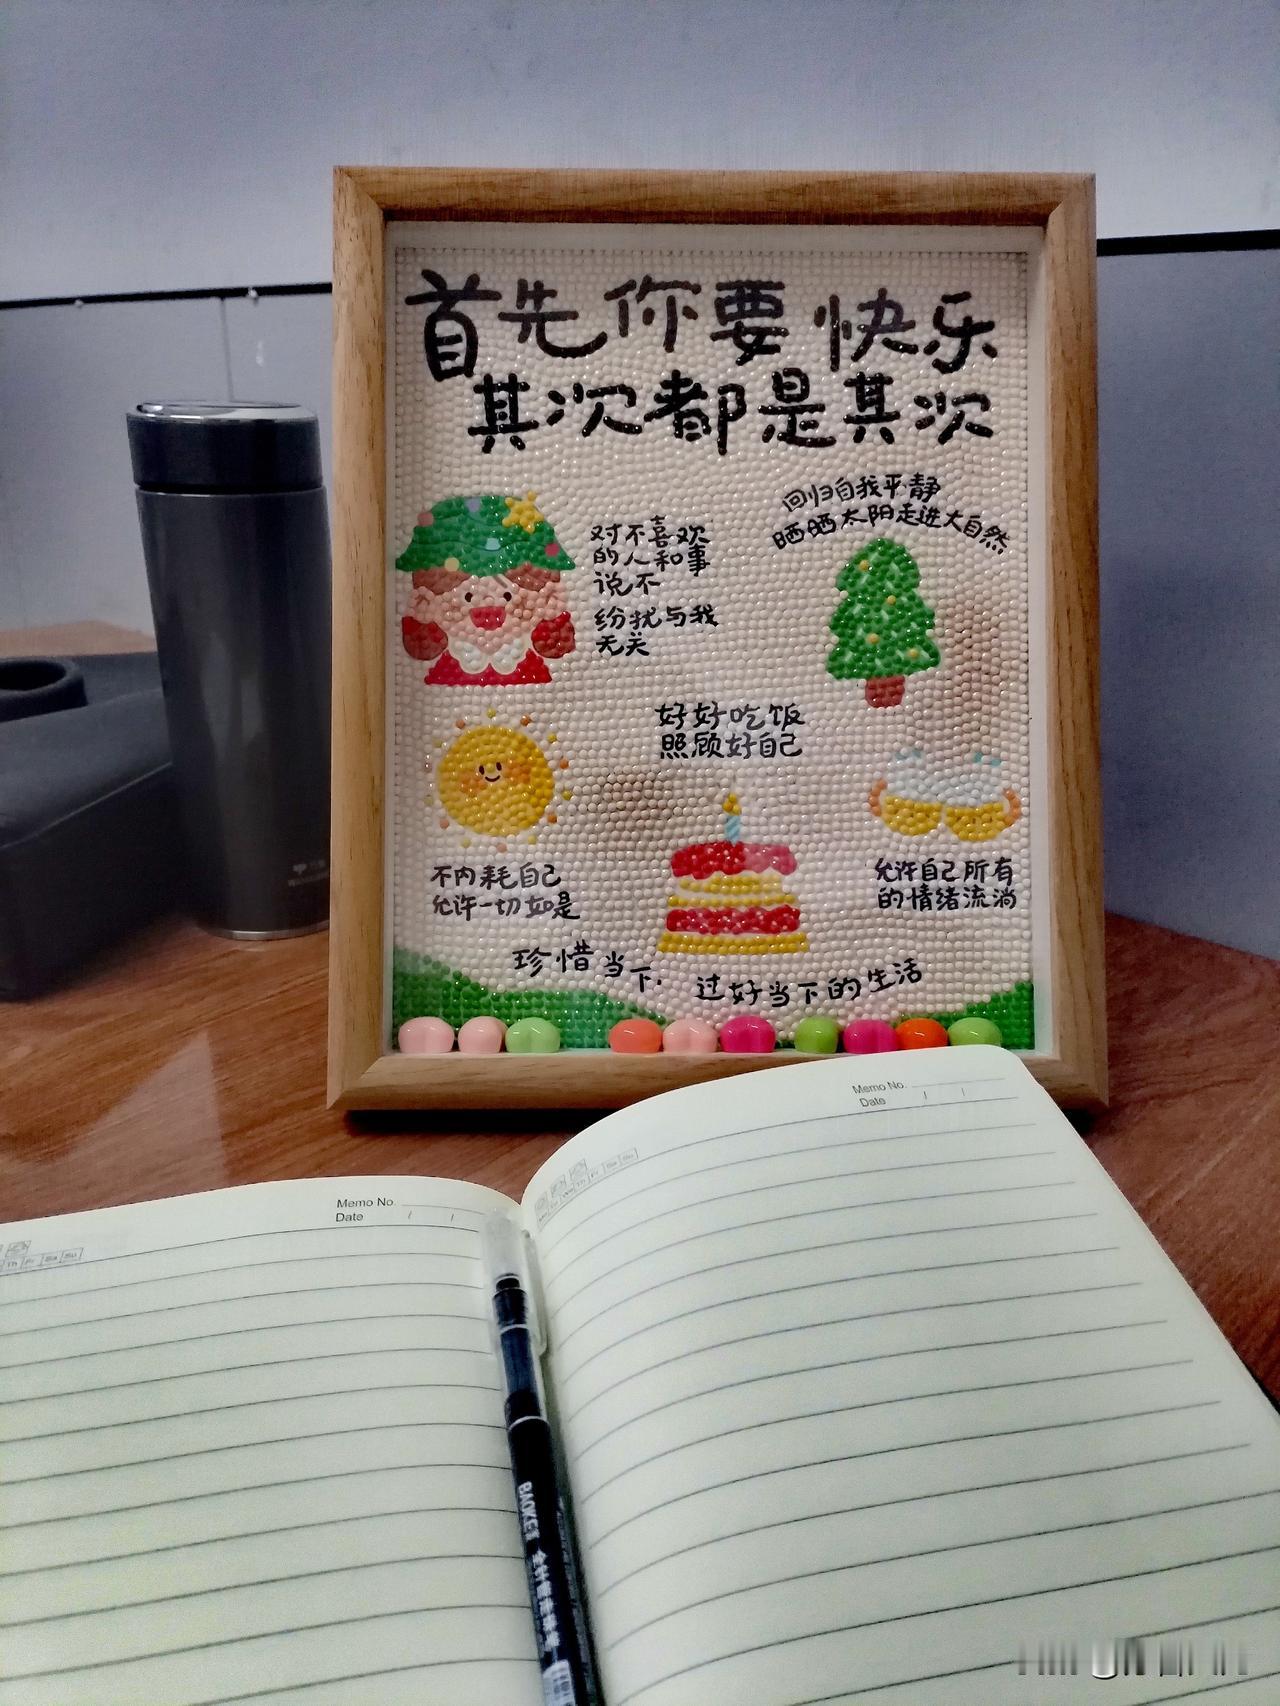 首先你要快乐
其次都是其次
回归自我平静
晒晒太阳走进大自然
对不喜欢
的人和事
说不
纷扰与我
无关
好好吃饭
照顾好自己
不内耗自己
允许一切如是
允许自己所有
的情绪流淌
珍惜当下.
过好当下的生活
Memo No.
Date / /
Memo No.
Date / /
Th Fr Sa Su
BAOKE